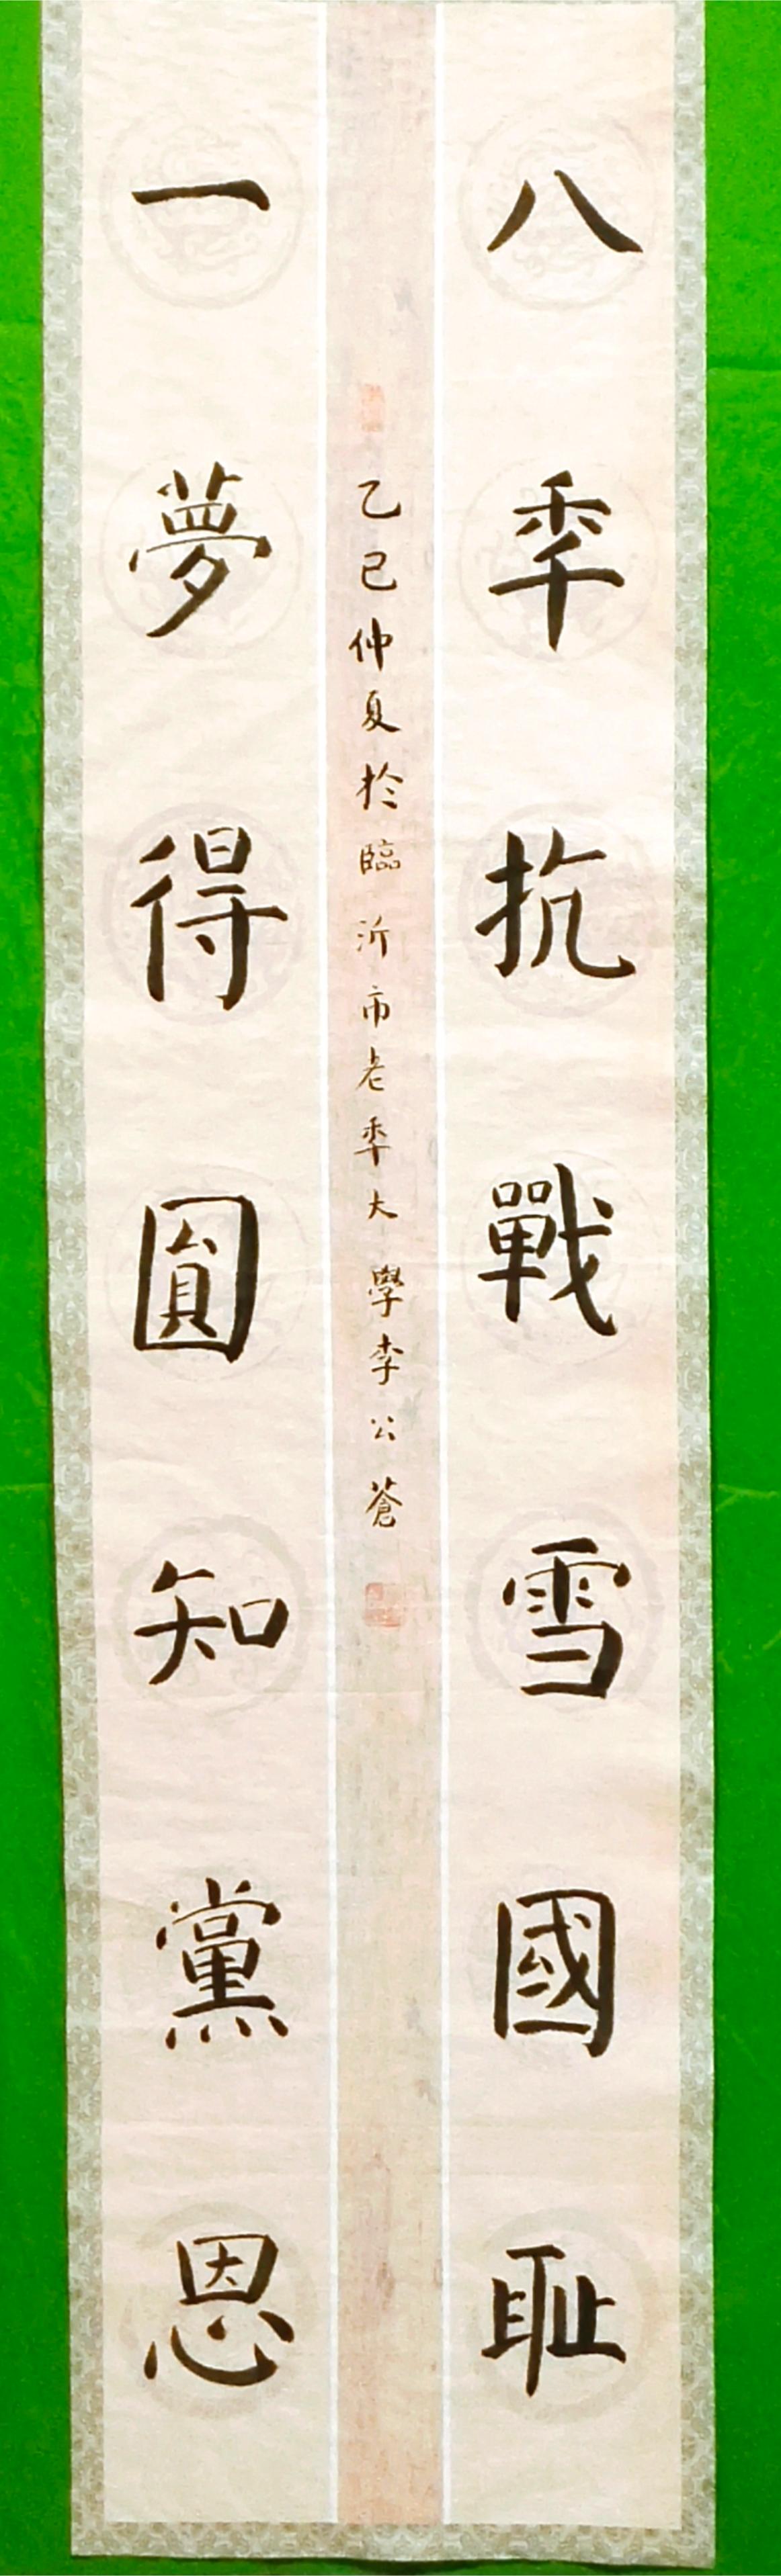 八秊抗戰雪國耻
一夢得圓知黨恩
乙巳仲夏於臨沂市老秊大學李公蒼